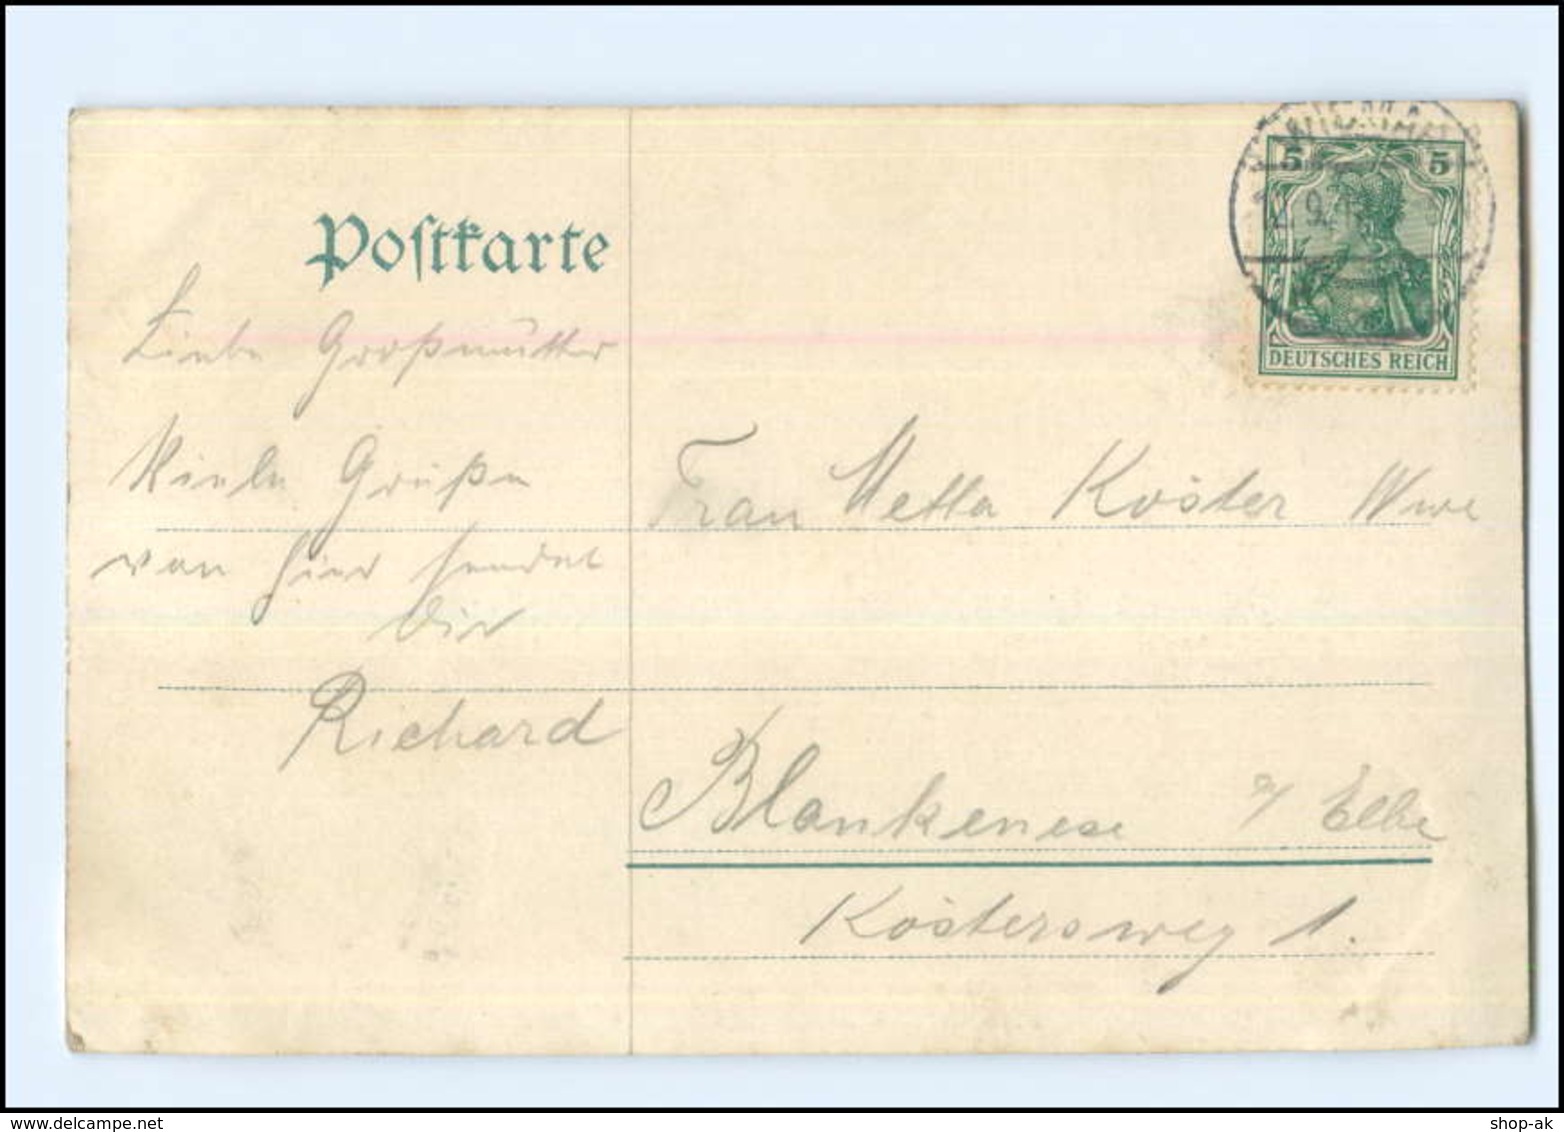 Postkarte
Liebe Großmutter
Viele Grüße
von hier sendet
Dir
Richard
5 5
DEUTSCHES REICH
Frau Metta Köster Wwe
Blankenese a/ Elbe
Köstersweg 1.
shop-ak